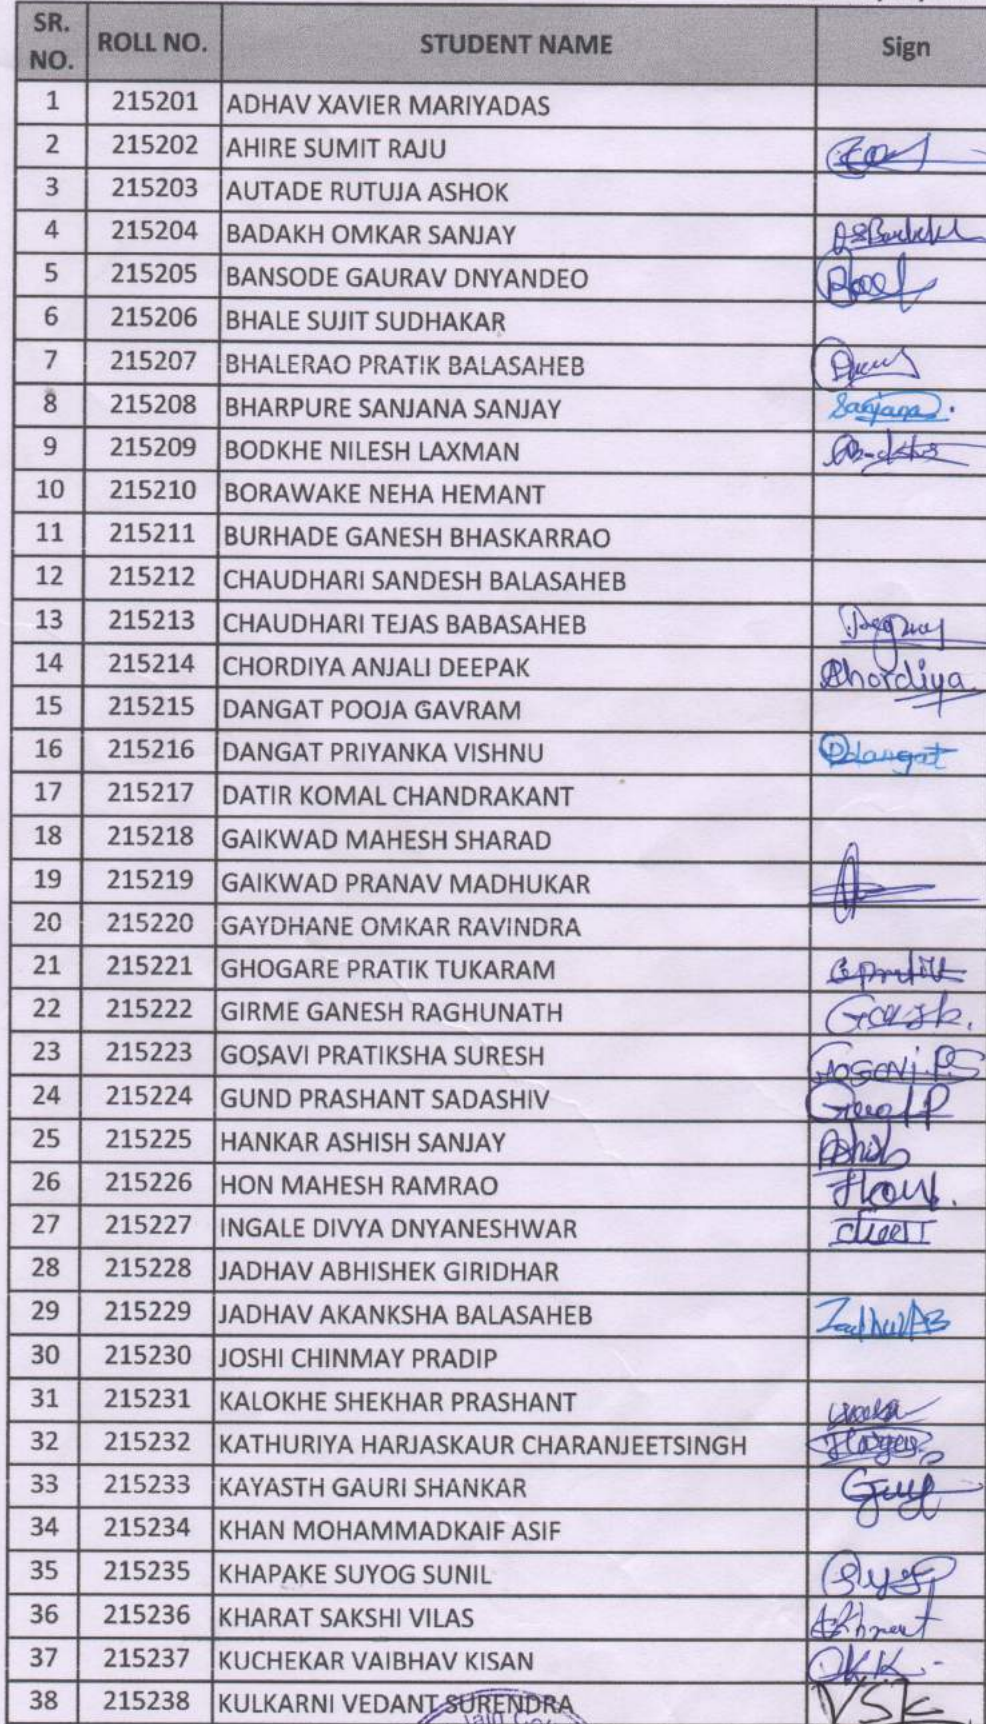 SR. NO. ROLL NO. STUDENT NAME Sign
1 215201 ADHAV XAVIER MARIYADAS
2 215202 AHIRE SUMIT RAJU
3 215203 AUTADE RUTUJA ASHOK
4 215204 BADAKH OMKAR SANJAY
5 215205 BANSODE GAURAV DNYANDEO
6 215206 BHALE SUJIT SUDHAKAR
7 215207 BHALERAO PRATIK BALASAHEB
8 215208 BHARPURE SANJANA SANJAY Sanjana
9 215209 BODKHE NILESH LAXMAN
10 215210 BORAWAKE NEHA HEMANT
11 215211 BURHADE GANESH BHASKARRAO
12 215212 CHAUDHARI SANDESH BALASAHEB
13 215213 CHAUDHARI TEJAS BABASAHEB
14 215214 CHORDIYA ANJALI DEEPAK Chordiya
15 215215 DANGAT POOJA GAVRAM
16 215216 DANGAT PRIYANKA VISHNU PDangat
17 215217 DATIR KOMAL CHANDRAKANT
18 215218 GAIKWAD MAHESH SHARAD
19 215219 GAIKWAD PRANAV MADHUKAR
20 215220 GAYDHANE OMKAR RAVINDRA
21 215221 GHOGARE PRATIK TUKARAM
22 215222 GIRME GANESH RAGHUNATH
23 215223 GOSAVI PRATIKSHA SURESH Gosavi.P.S
24 215224 GUND PRASHANT SADASHIV
25 215225 HANKAR ASHISH SANJAY Ashish
26 215226 HON MAHESH RAMRAO
27 215227 INGALE DIVYA DNYANESHWAR
28 215228 JADHAV ABHISHEK GIRIDHAR
29 215229 JADHAV AKANKSHA BALASAHEB JadhavAB
30 215230 JOSHI CHINMAY PRADIP
31 215231 KALOKHE SHEKHAR PRASHANT
32 215232 KATHURIYA HARJASKAUR CHARANJEETSINGH
33 215233 KAYASTH GAURI SHANKAR
34 215234 KHAN MOHAMMADKAIF ASIF
35 215235 KHAPAKE SUYOG SUNIL
36 215236 KHARAT SAKSHI VILAS
37 215237 KUCHEKAR VAIBHAV KISAN
38 215238 KULKARNI VEDANT SURENDRA VSK